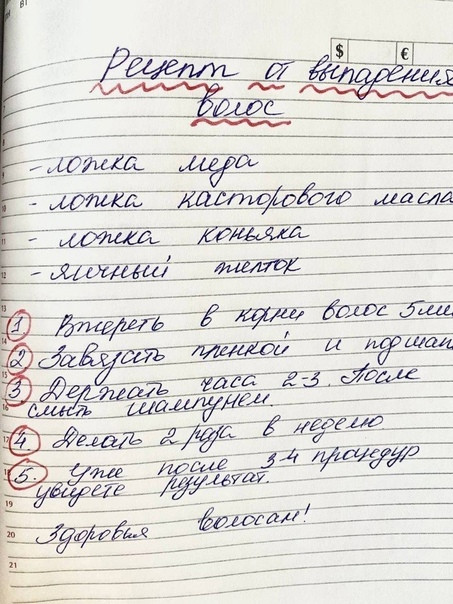 ВТ
$ €
Рецепт от выпадения
волос
- ложка меда
- ложка касторового масла
- ложка коньяка
- яичный желток
1 Втереть в корни волос 5 мин
2 Завязать пленкой и под шап
3 Держать часа 2-3. После
смыть шампунем
4 Делать 2 раза в неделю
5. Уже после 3-4 процедур
увидете результат.
Здоровья волосам!
9
10
11
12
13
14
15
16
17
18
19
20
21